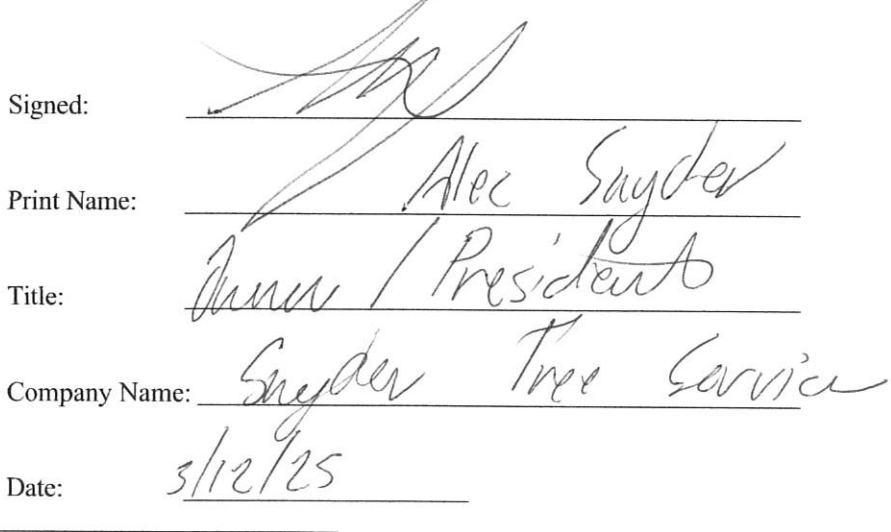 Signed:
Print Name: Alec Snyder
Title: Owner / President
Company Name: Snyder Tree Service
Date: 3/12/25